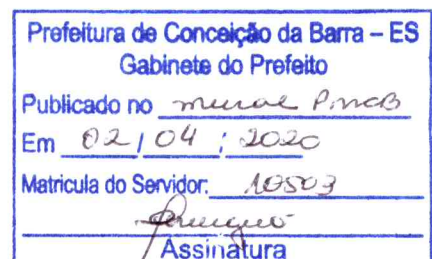 Prefeitura de Conceição da Barra – ES
Gabinete do Prefeito
Publicado no mural PMCB
Em 02 / 04 / 2020
Matricula do Servidor: 10503
Assinatura